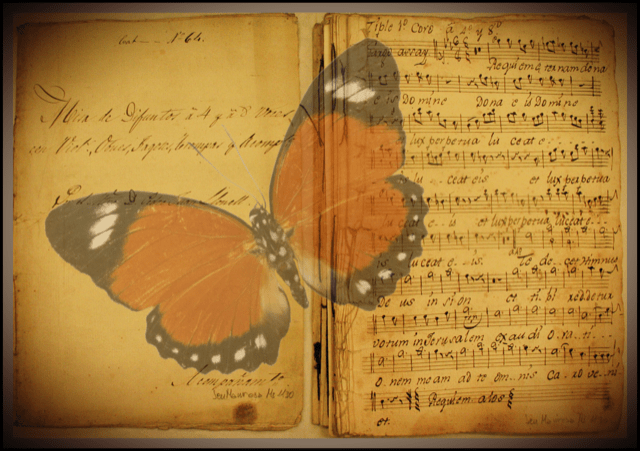 Nº 64.
Misa de Difuntos â 4 y â 8 Voces
con Viol.s, Oboes, Fagot, Trompas y Acomp.to
Acompañamto
Seu Manresa Ms 1130
Tiple 1º Coro â 4 y 8º
Requiem eternam dona
e is Domine Dona e is Domine
et lux perpetua lu ceat e
lu ceat eis et lux perpetua
lu ceat e is et lux perpetua luceat e
is luceat e is. Te de cet Himnus
De us in si on et ti bi redde tur
votum in Jerusalem Exau di O ra ti
O nem meam ad te om..nis Ca..ro ve..ni
et. Requiem
Seu Manresa